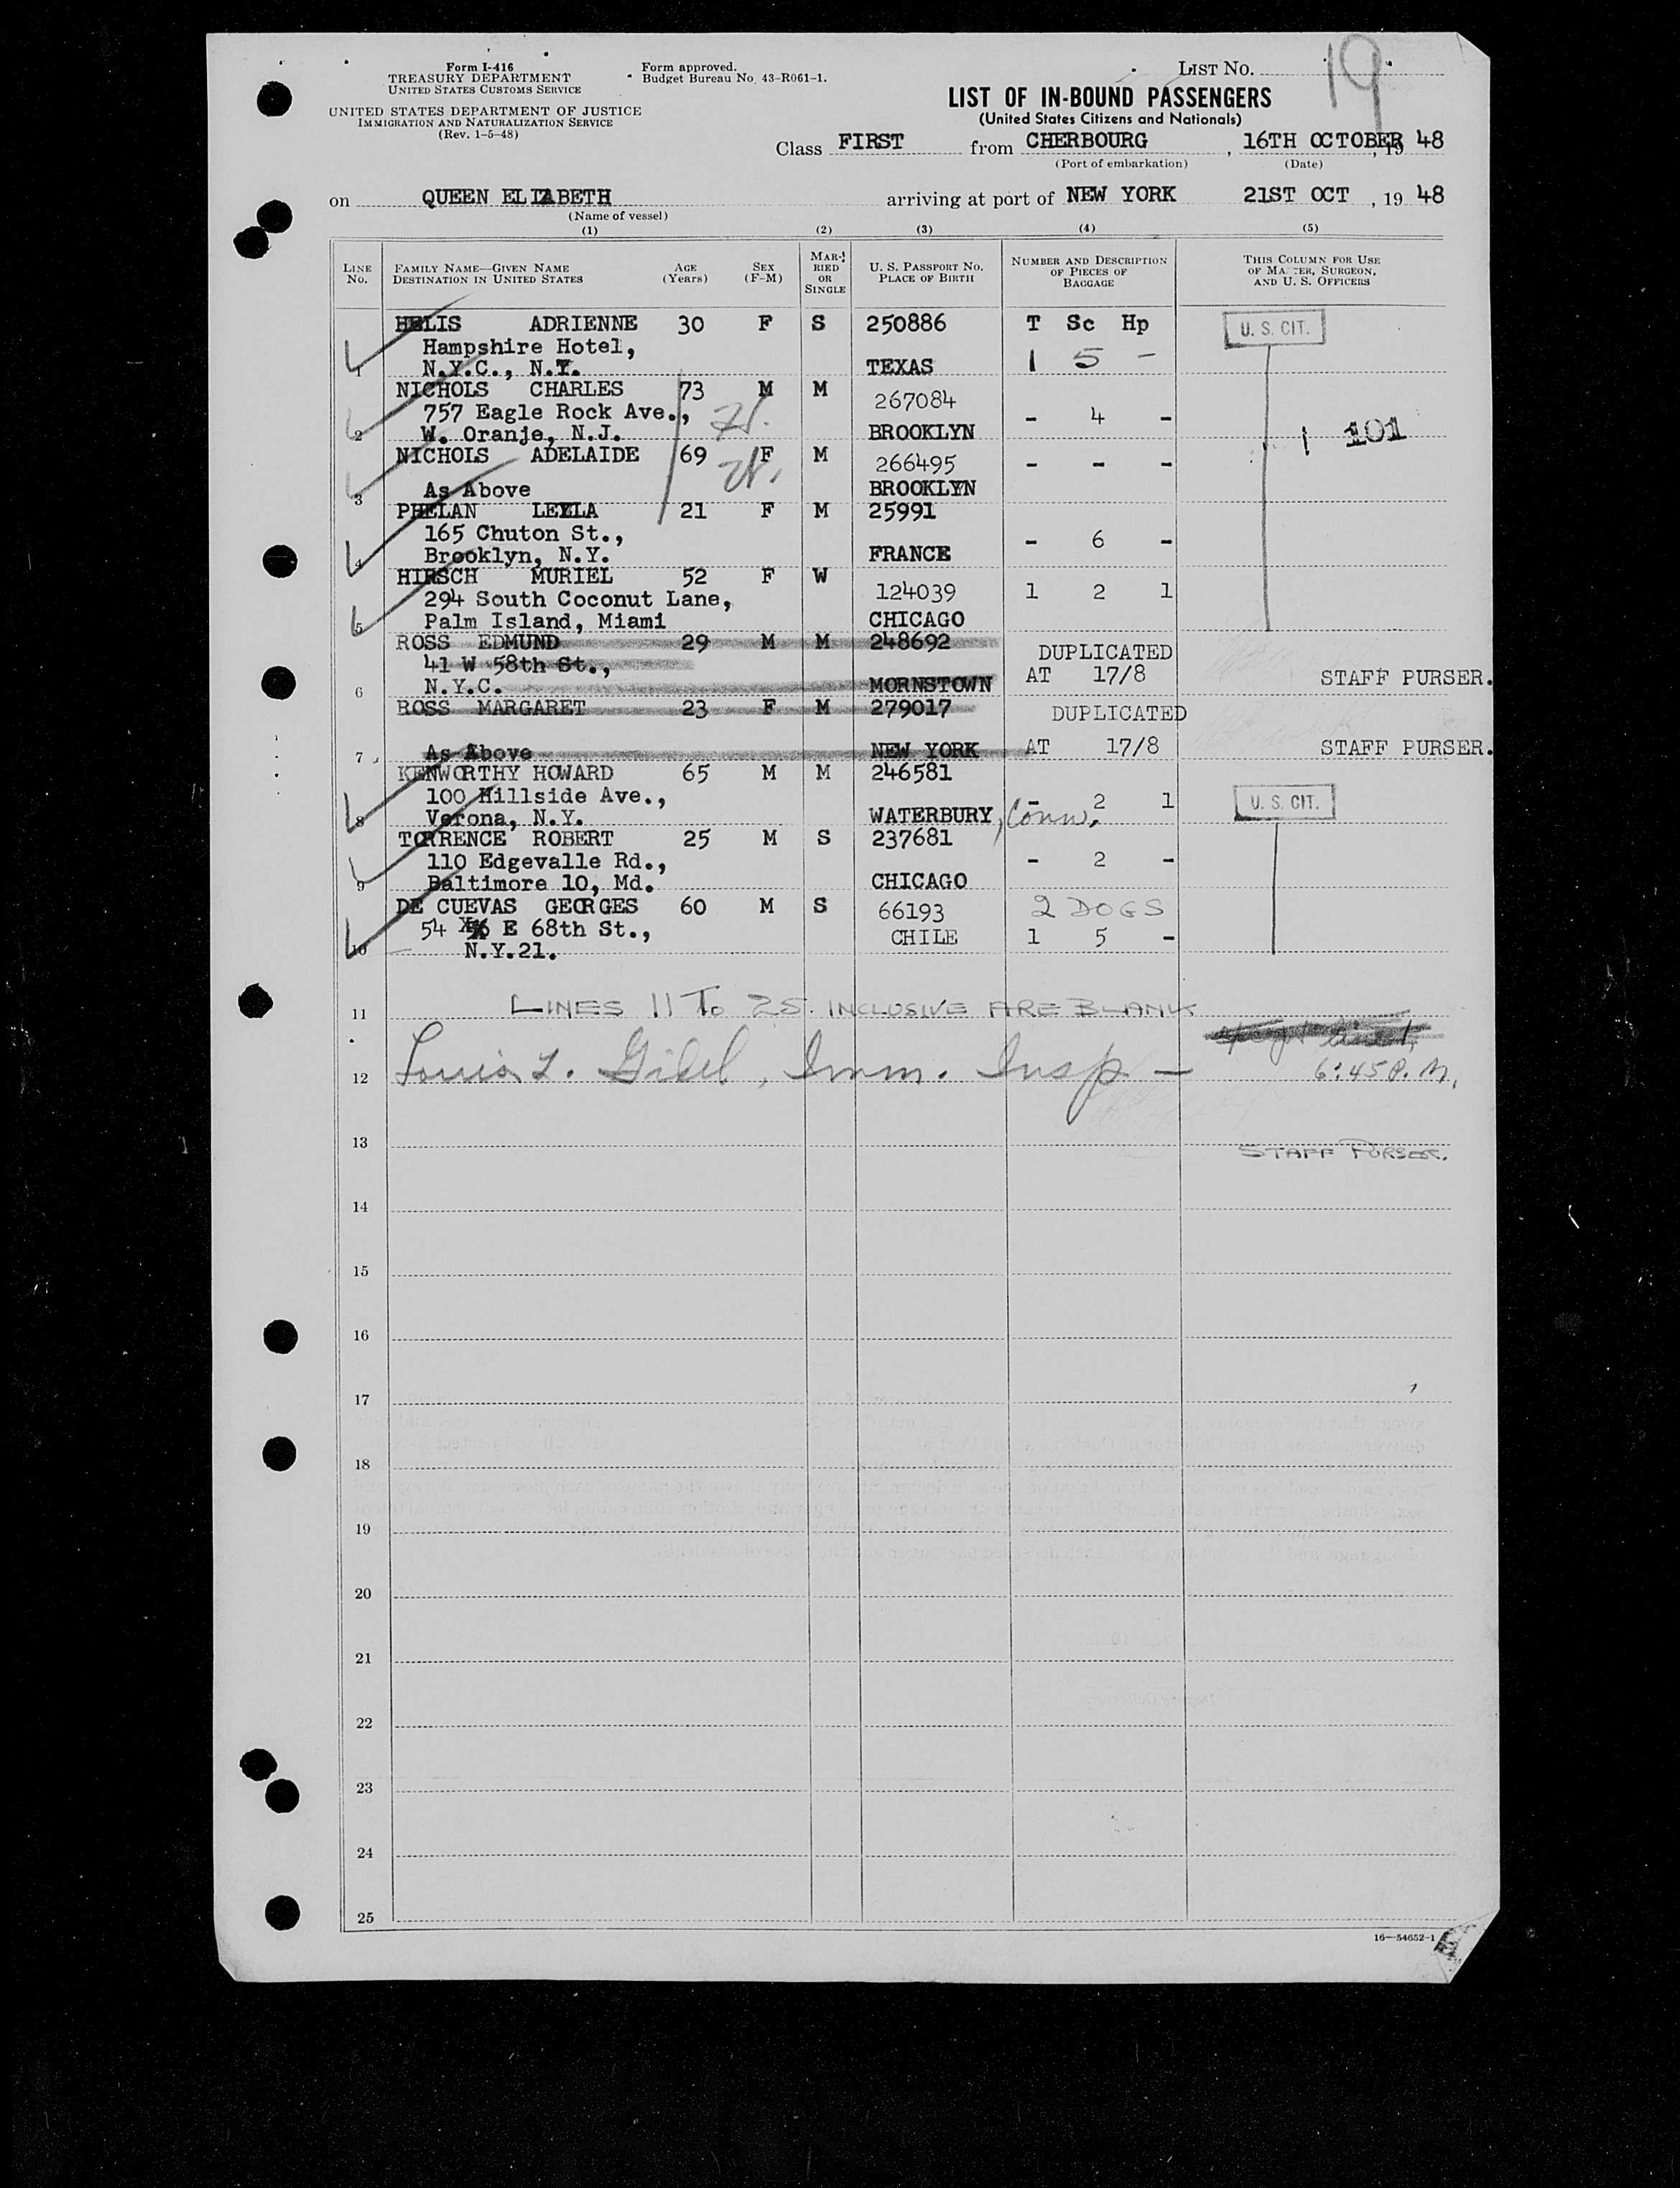 Form I-416
TREASURY DEPARTMENT
UNITED STATES CUSTOMS SERVICE
UNITED STATES DEPARTMENT OF JUSTICE
IMMIGRATION AND NATURALIZATION SERVICE
(Rev. 1-5-48)
Form approved.
Budget Bureau No. 43-R061-1.
LIST NO. 19
LIST OF IN-BOUND PASSENGERS
(United States Citizens and Nationals)
Class FIRST from CHERBOURG, 16TH OCTOBER, 19 48
(Port of embarkation) (Date)
on QUEEN ELIZABETH arriving at port of NEW YORK 21ST OCT, 19 48
(Name of vessel)
(1) (2) (3) (4) (5)
LINE NO. FAMILY NAME—GIVEN NAME DESTINATION IN UNITED STATES AGE (Years) SEX (F-M) MARRIED OR SINGLE U. S. PASSPORT NO. PLACE OF BIRTH NUMBER AND DESCRIPTION OF PIECES OF BAGGAGE THIS COLUMN FOR USE OF MASTER, SURGEON, AND U. S. OFFICERS
HELIS ADRIENNE 30 F S 250886 T Sc Hp U. S. CIT.
Hampshire Hotel,
1 N.Y.C., N.Y. TEXAS 1 5 -
NICHOLS CHARLES 73 M M 267084
757 Eagle Rock Ave., - 4 -
2 W. Oranje, N.J. BROOKLYN 101
NICHOLS ADELAIDE 69 F M 266495 - - -
3 As Above BROOKLYN
PHELAN LEYLA 21 F M 25991
165 Chuton St., - 6 -
4 Brooklyn, N.Y. FRANCE
HIRSCH MURIEL 52 F W 124039 1 2 1
294 South Coconut Lane,
5 Palm Island, Miami CHICAGO
ROSS EDMUND 29 M M 248692 DUPLICATED
41 W 58th St.,
6 N.Y.C. MORNSTOWN AT 17/8 STAFF PURSER.
ROSS MARGARET 23 F M 279017 DUPLICATED
7 As Above NEW YORK AT 17/8 STAFF PURSER.
KENWORTHY HOWARD 65 M M 246581
100 Hillside Ave., - 2 1 U. S. CIT.
8 Verona, N.Y. WATERBURY, Conn.
TORRENCE ROBERT 25 M S 237681
110 Edgevalle Rd., - 2 -
9 Baltimore 10, Md. CHICAGO
DE CUEVAS GEORGES 60 M S 66193 2 DOGS
54 E 68th St., CHILE 1 5 -
10 N.Y.21.
11 LINES 11 To 25 INCLUSIVE ARE BLANK
12 Louis L. Gibel, Imm. Insp - 6:45 P.M.
13
STAFF PURSER.
14
15
16
17
18
19
20
21
22
23
24
25
16—54652-1